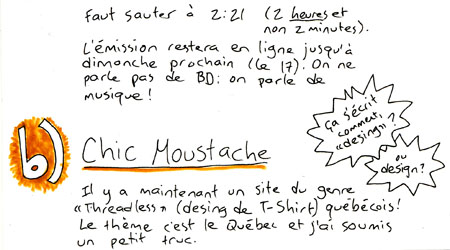 faut sauter à 2:21 (2 heures et
non 2 minutes).
L'émission restera en ligne jusqu'à
dimanche prochain (le 17). On ne
parle pas de BD: on parle de
musique!
Ça s'écrit
comment,
«desing»?
ou
design?
b) Chic Moustache
Il y a maintenant un site du genre
«Threadless» (desing de T-Shirt) québécois!
Le thème c'est le Québec et j'ai soumis
un petit truc.